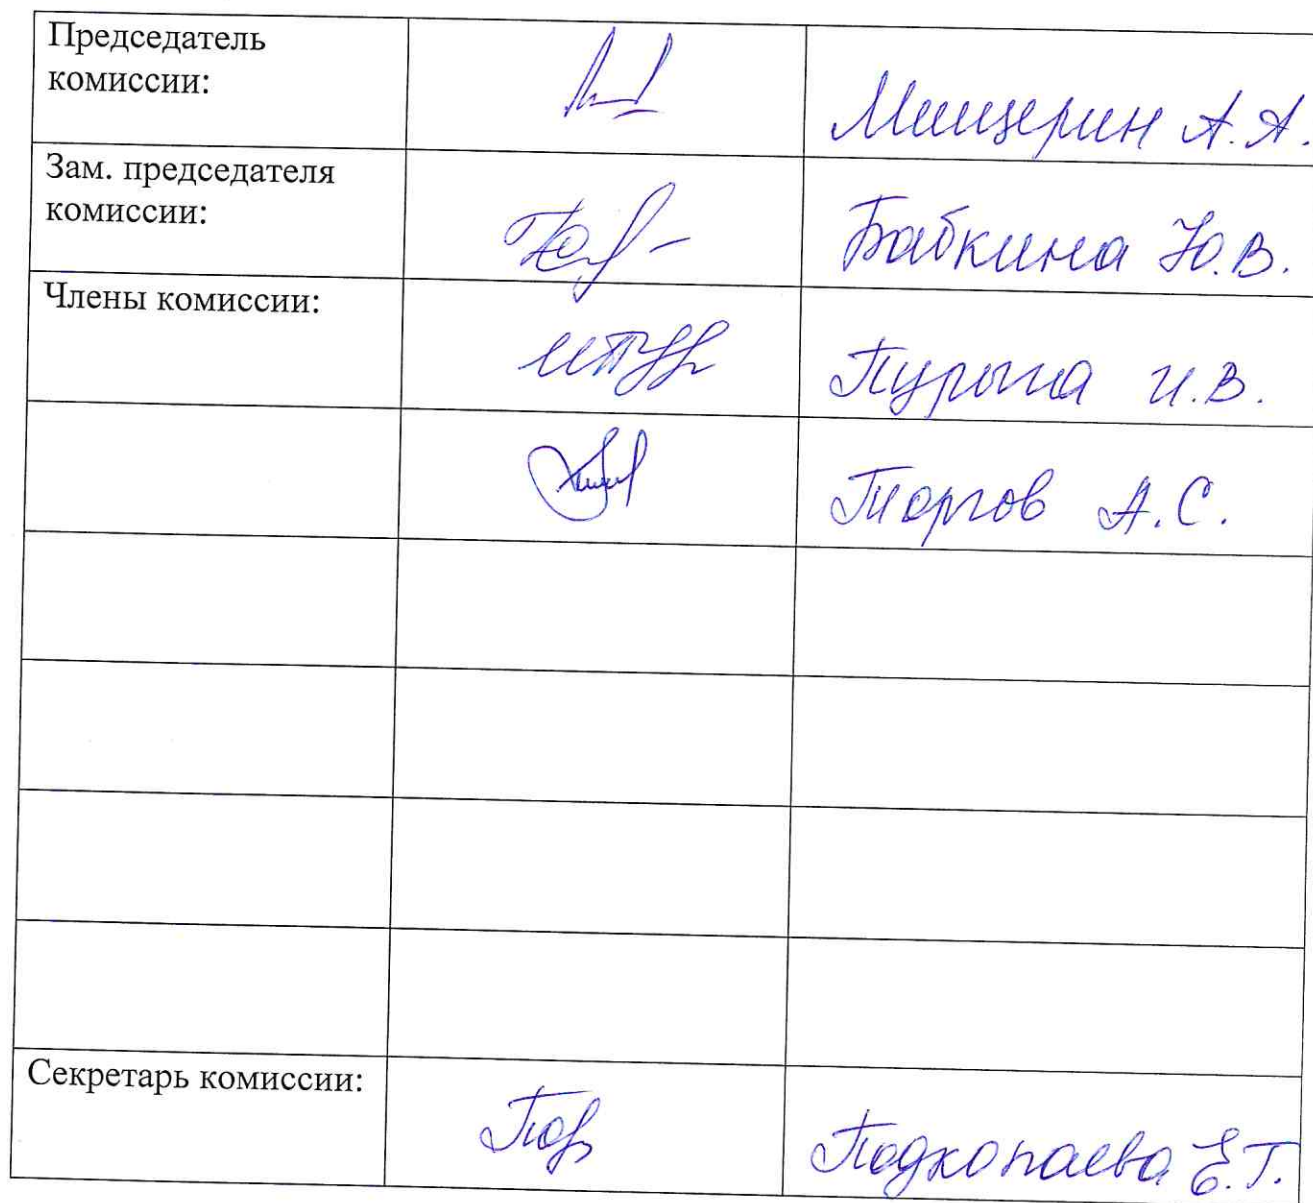 Председатель
комиссии:
Мищерин А.А.
Зам. председателя
комиссии:
Бабкина Ю.В.
Члены комиссии:
И.В.
Торгов А.С.
Секретарь комиссии:
Подкопаева Е.Г.